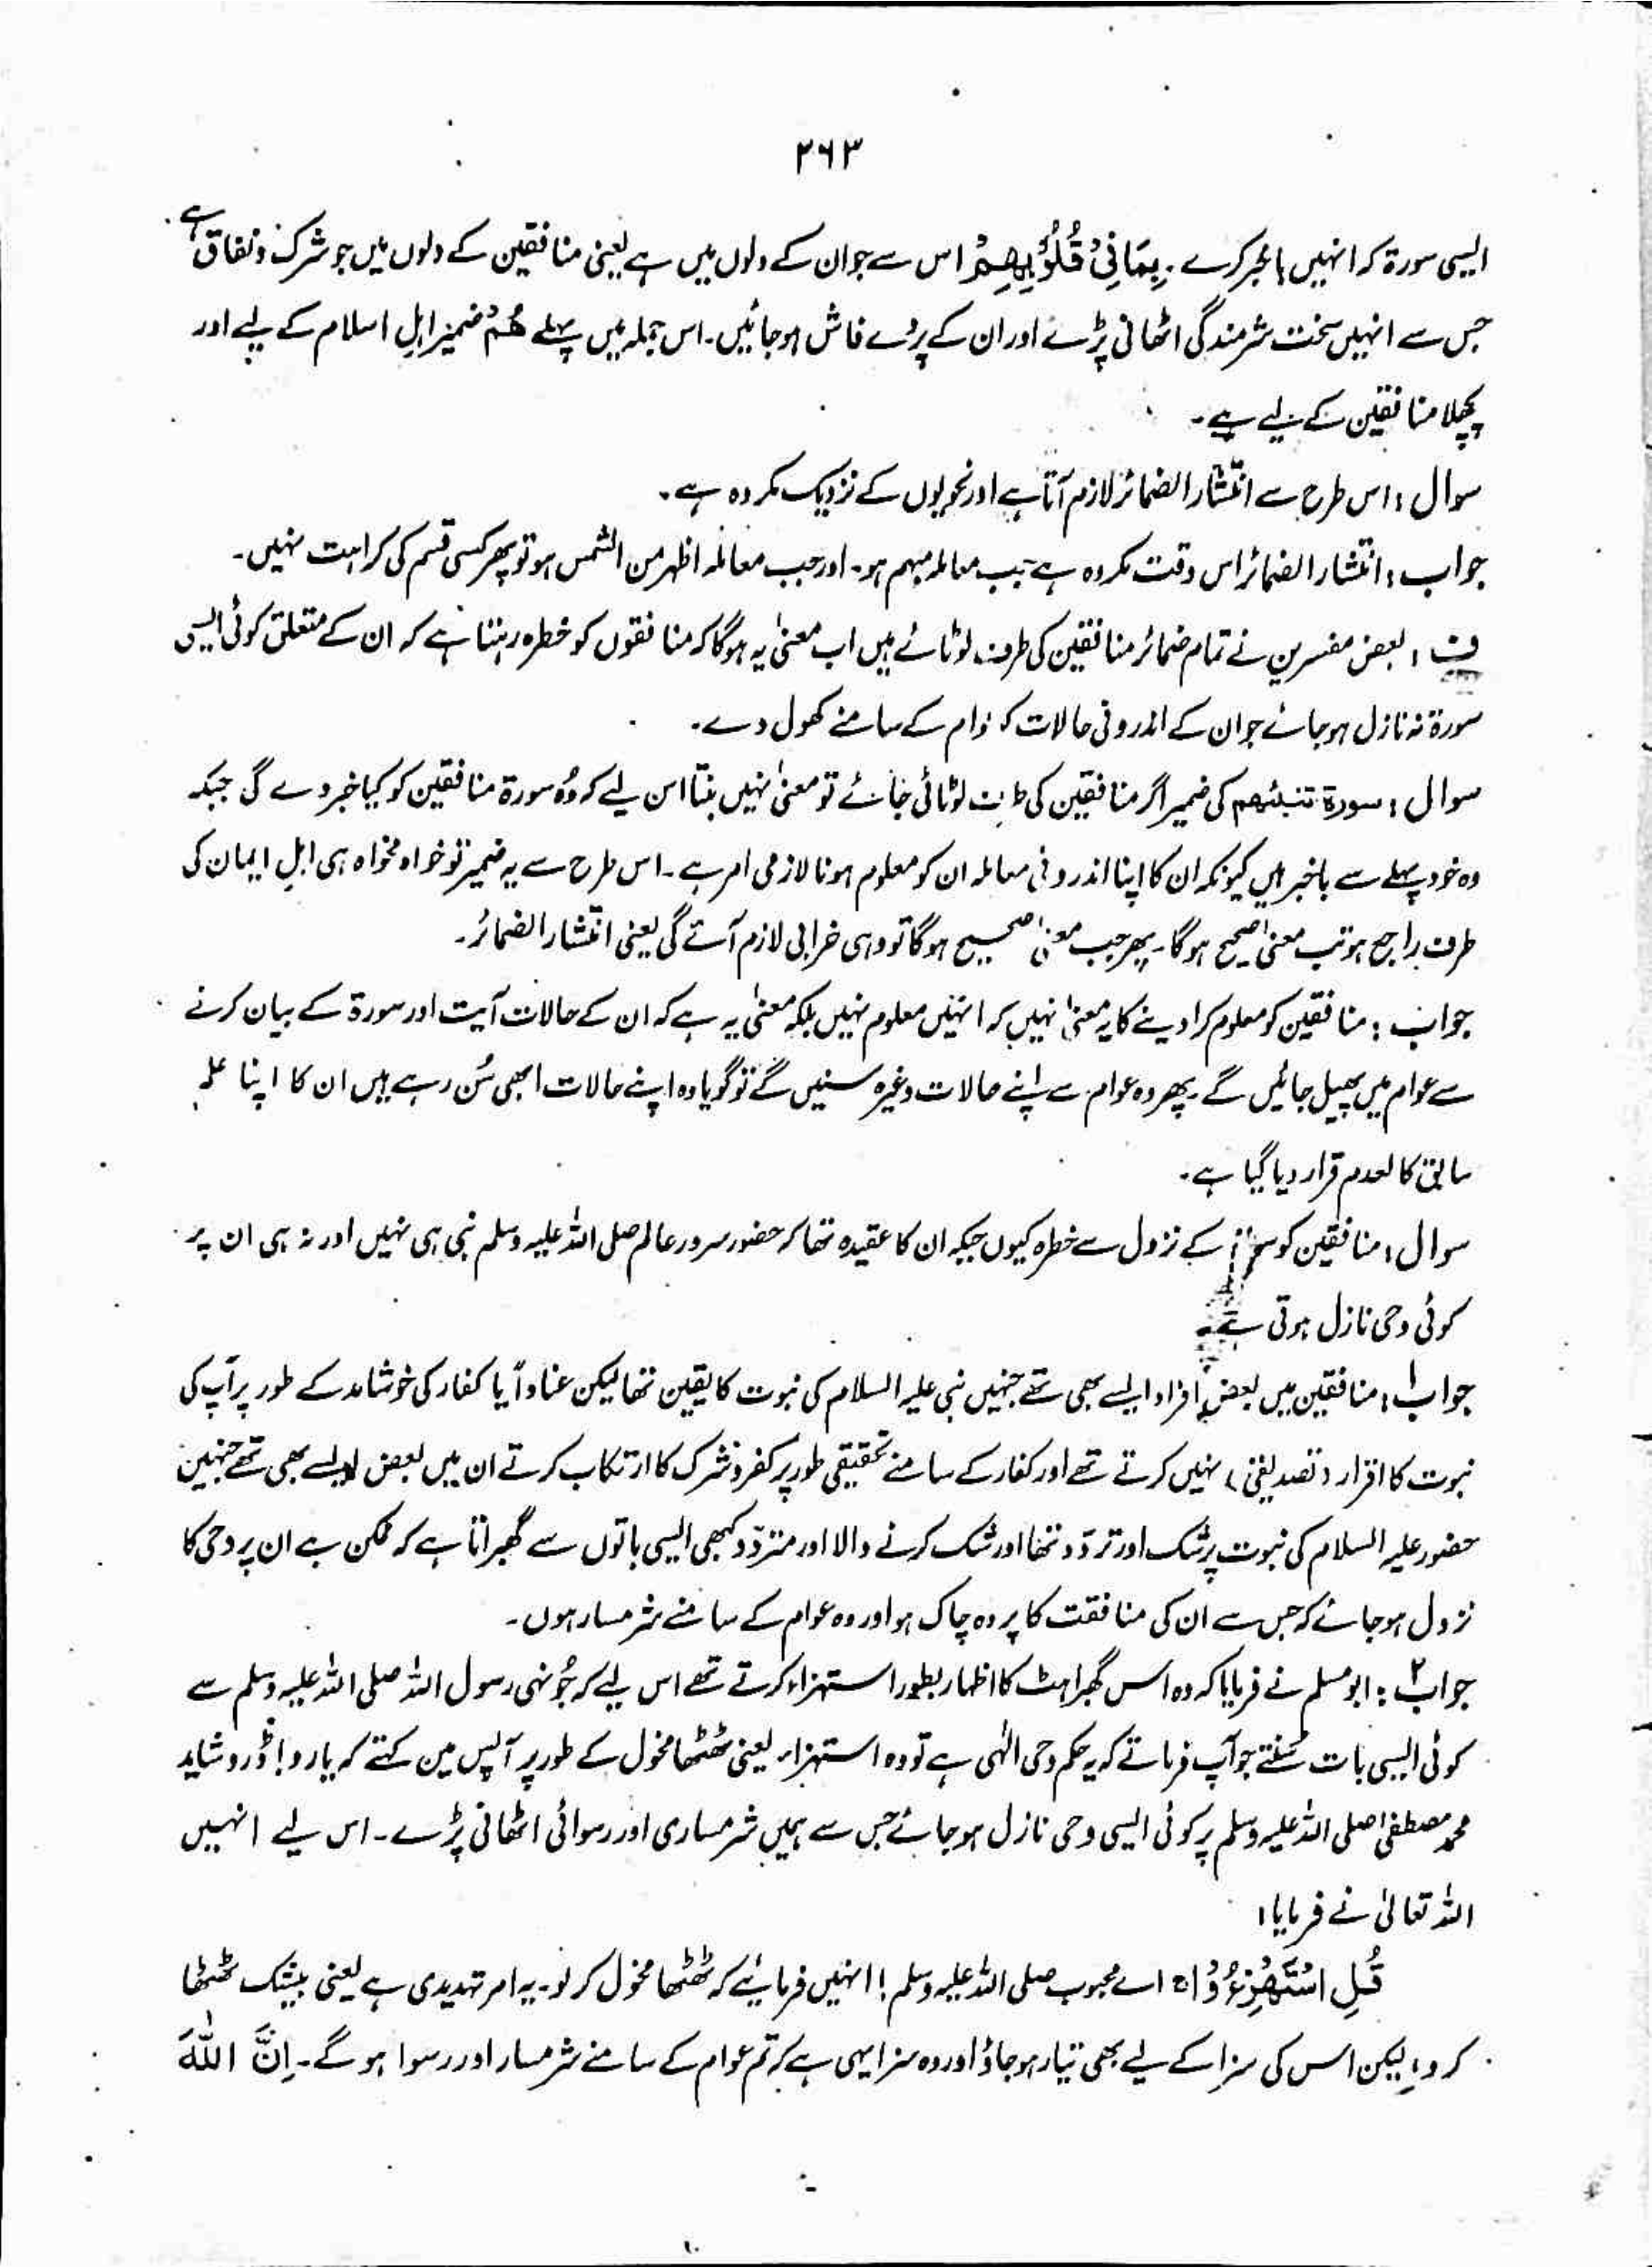 ۲۶۳
ایسی سورۃ کہ انہیں باخبر کرے۔ بِمَا فِیْ قُلُوْبِھِمْ اس سے جو ان کے دلوں میں ہے یعنی منافقین کے دلوں میں جو شرک و نفاق ہے
جس سے انہیں سخت شرمندگی اٹھانی پڑے اور ان کے پردے فاش ہوجائیں۔ اس جملہ میں پہلے ھُمْ ضمیر اہلِ اسلام کے لیے اور
پچھلا منافقین کے لیے ہے۔
سوال : اس طرح سے انتشار الضمائر لازم آتا ہے اور نحویوں کے نزدیک مکروہ ہے۔
جواب : انتشار الضمائر اس وقت مکروہ ہے جب معاملہ مبہم ہو۔ اور جب معاملہ اظہر من الشمس ہو تو پھر کسی قسم کی کراہت نہیں۔
ف : بعض مفسرین نے تمام ضمائر منافقین کی طرف لوٹائے ہیں اب معنیٰ یہ ہوگا کہ منافقوں کو خطرہ رہتا ہے کہ ان کے متعلق کوئی ایسی
سورۃ نہ نازل ہوجائے جو ان کے اندرونی حالات کو عوام کے سامنے کھول دے۔
سوال : سورۃ تنبئھم کی ضمیر اگر منافقین کی طرف لوٹائی جائے تو معنیٰ نہیں بنتا اس لیے کہ وُہ سورۃ منافقین کو کیا خبر دے گی جبکہ
وہ خود پہلے سے باخبر ہیں کیونکہ ان کا اپنا اندرونی معاملہ ان کو معلوم ہونا لازمی امر ہے۔ اس طرح سے یہ ضمیر تو خواہ مخواہ ہی اہلِ ایمان کی
طرف راجع ہو تب معنیٰ صحیح ہوگا۔ پھر جب معنیٰ صحیح ہوگا تو وہی خرابی لازم آئے گی یعنی انتشار الضمائر۔
جواب : منافقین کو معلوم کرا دینے کا یہ معنیٰ نہیں کہ انہیں معلوم نہیں بلکہ معنیٰ یہ ہے کہ ان کے حالات آیت اور سورۃ کے بیان کرنے
سے عوام میں پھیل جائیں گے۔ پھر وہ عوام سے اپنے حالات وغیرہ سنیں گے تو گویا وہ اپنے حالات ابھی سُن رہے ہیں ان کا اپنا علم
سابق کالعدم قرار دیا گیا ہے۔
سوال : منافقین کو کے نزول سے خطرہ کیوں جبکہ ان کا عقیدہ تھا کہ حضور سرور عالم صلی اللہ علیہ وسلم نبی ہی نہیں اور نہ ہی ان پر
کوئی وحی نازل ہوتی ہے۔
جواب۱ : منافقین میں بعض افراد ایسے بھی تھے جنہیں نبی علیہ السلام کی نبوت کا یقین تھا لیکن عناداً یا کفار کی خوشامد کے طور پر آپ کی
نبوت کا اقرار (تصدیقی) نہیں کرتے تھے اور کفار کے سامنے تحقیقی طور پر کفر و شرک کا ارتکاب کرتے ان میں بعض ایسے بھی تھے جنہیں
حضور علیہ السلام کی نبوت پر شک اور تردّد تھا اور شک کرنے والا اور متردّد کبھی ایسی باتوں سے گھبراتا ہے کہ ممکن ہے ان پر وحی کا
نزول ہوجائے کہ جس سے ان کی منافقت کا پردہ چاک ہو اور وہ عوام کے سامنے شرمسار ہوں۔
جواب۲ : ابو مسلم نے فرمایا کہ وہ اس گھبراہٹ کا اظہار بطور استہزاء کرتے تھے اس لیے کہ جُونہی رسول اللہ صلی اللہ علیہ وسلم سے
کوئی ایسی بات سُنتے جو آپ فرماتے کہ یہ حکم وحی الٰہی ہے تو وہ استہزاء یعنی ٹھٹھا مخول کے طور پر آپس میں کہتے کہ یارو! ڈرو شاید
محمد مصطفیٰ صلی اللہ علیہ وسلم پر کوئی ایسی وحی نازل ہوجائے جس سے ہمیں شرمساری اور رسوائی اٹھانی پڑے۔ اس لیے انہیں
اللہ تعالیٰ نے فرمایا :
قُلِ اسْتَھْزِءُوْا ج اے محبوب صلی اللہ علیہ وسلم! انہیں فرمائیے کہ ٹھٹھا مخول کرلو۔ یہ امر تہدیدی ہے یعنی بیشک ٹھٹھا
کرو، لیکن اس کی سزا کے لیے بھی تیار ہوجاؤ اور وہ سزا یہی ہے کہ تم عوام کے سامنے شرمسار اور رسوا ہوگے۔ اِنَّ اللّٰہَ